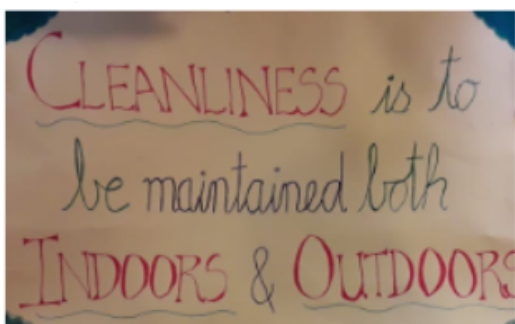 CLEANLINESS is to
be maintained both
INDOORS & OUTDOORS